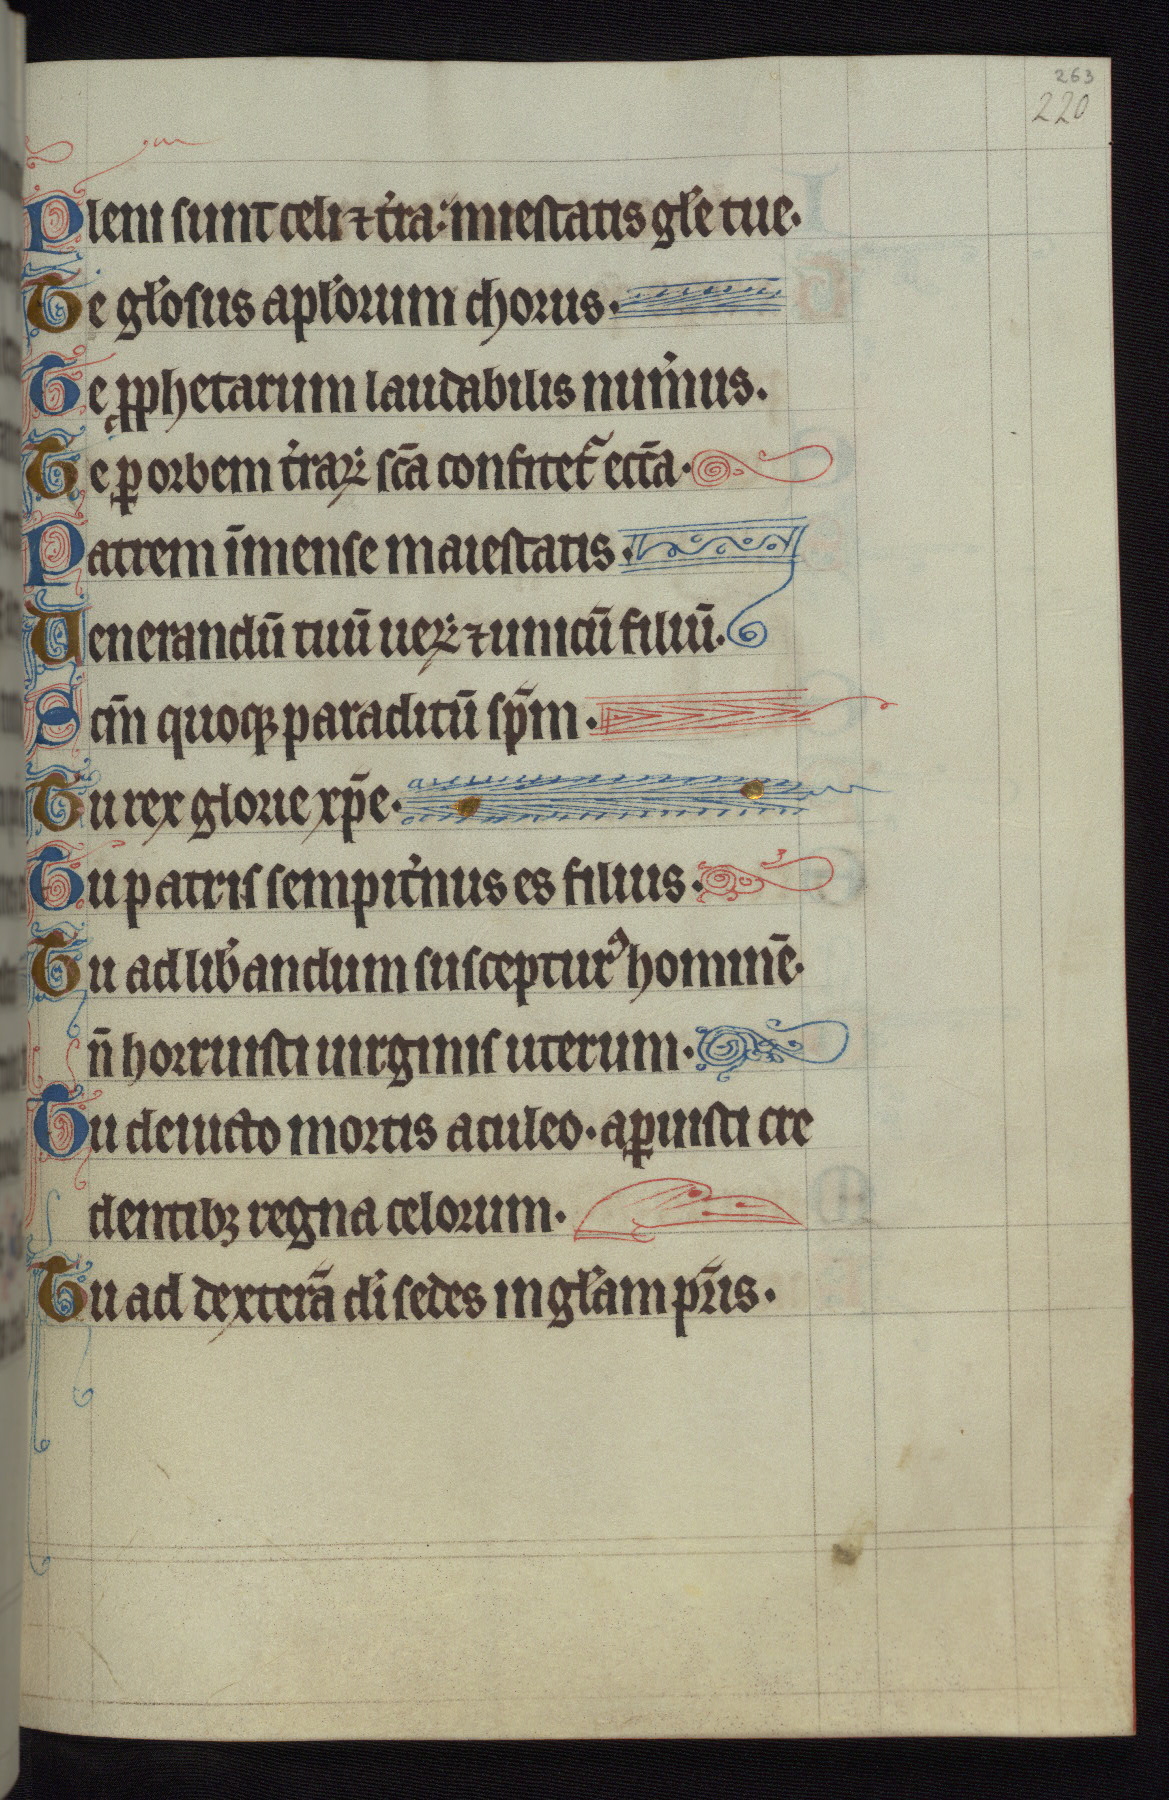 263
220
Pleni sunt celi ⁊ t̾ra: miestatis gl̾e tue·
Te gl̾osus apl̾orum chorus·
Te ꝓphetarum laudabilis num̾us.
Te ꝑ orbem t̾raꝝ sc̄a confitet᷑ eccl̄a·
Patrem īmense maiestatis·
Uenerandū tuū ueꝝ ⁊ unicū filiū.
Scm̄ quoqꝫ paraclitū sp̄m·
Tu rex glorie xp̄e·
Tu patris sempit̾nus es filius·
Tu ad lib̾andum susceptur᷒ hominē·
n̄ horruisti uirginis uterum·
Tu deuicto mortis aculeo· aꝑuisti cre
dentibꝫ regna celorum·
Tu ad dexterā di̾ sedes in gl̾am pr̄is·